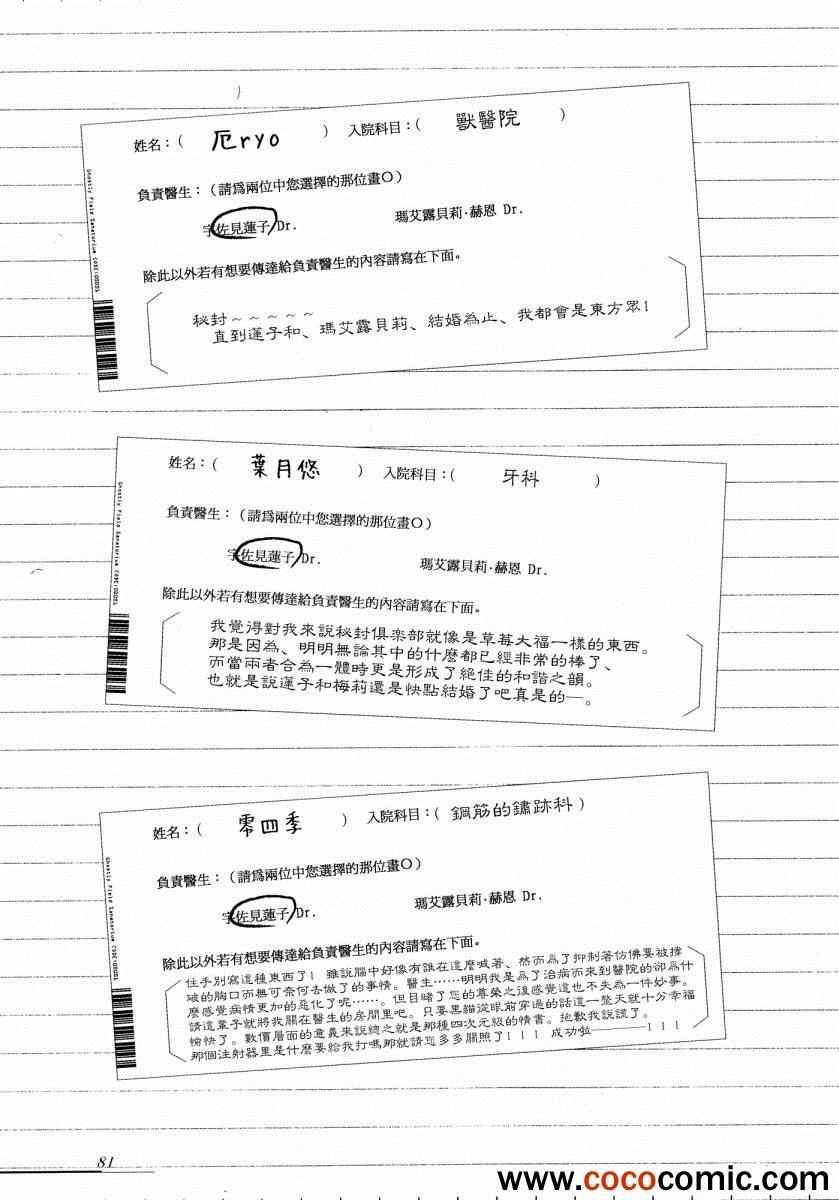 姓名：( 厄ryo ) 入院科目：( 獸醫院 )
負責醫生：(請爲兩位中您選擇的那位畫O)
宇佐見蓮子 Dr. 瑪艾露貝莉·赫恩 Dr.
除此以外若有想要傳達給負責醫生的內容請寫在下面。
秘封～～～～～
直到蓮子和、瑪艾露貝莉、結婚為止、我都會是東方眾!
Ghostly Field Sanatorium CODE:00001
姓名：( 葉月悠 ) 入院科目：( 牙科 )
負責醫生：(請爲兩位中您選擇的那位畫O)
宇佐見蓮子 Dr. 瑪艾露貝莉·赫恩 Dr.
除此以外若有想要傳達給負責醫生的內容請寫在下面。
我覺得對我來說秘封俱楽部就像是草莓大福一樣的東西。
那是因為、明明無論其中的什麼都已經非常的棒了、
而當兩者合為一體時更是形成了絕佳的和諧之韻。
也就是說蓮子和梅莉還是快點結婚了吧真是的—。
Ghostly Field Sanatorium CODE:00001
姓名：( 零四季 ) 入院科目：( 鋼筋的鏽跡科 )
負責醫生：(請爲兩位中您選擇的那位畫O)
宇佐見蓮子 Dr. 瑪艾露貝莉·赫恩 Dr.
除此以外若有想要傳達給負責醫生的內容請寫在下面。
住手別寫這種東西了! 雖說腦中好像有誰在這麼喊著、然而爲了抑制著仿佛要被撐
破的胸口而無可奈何去做了的事情。醫生……明明我是爲了治病而來到醫院的卻爲什
麼感覺病情更加的惡化了呢……。但目睹了您的尊榮之後感覺這也不失為一件妙事。
請這輩子就將我關在醫生的房間里吧。只要黑貓從眼前穿過的話這一整天就十分幸福
愉快了。數價層面的意義來說總之就是那種四次元級的情書。抱歉我說謊了。
那個注射器里是什麼要給我打嗎那就請您多多關照了!!! 成功啦————!!!
Ghostly Field Sanatorium CODE:00001
81
www.cococomic.com